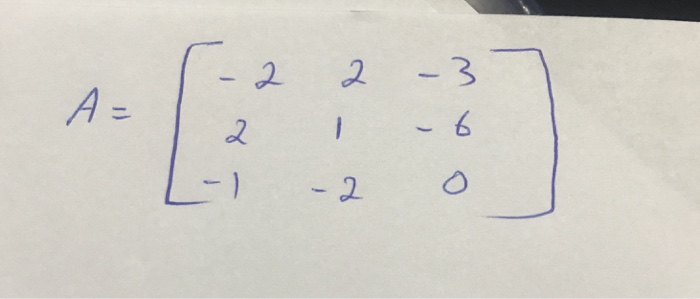 -2 2 -3
A = 2 1 -6
-1 -2 0